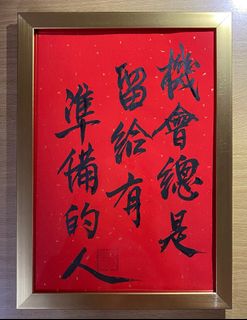 機會總是
留給有
準備的人